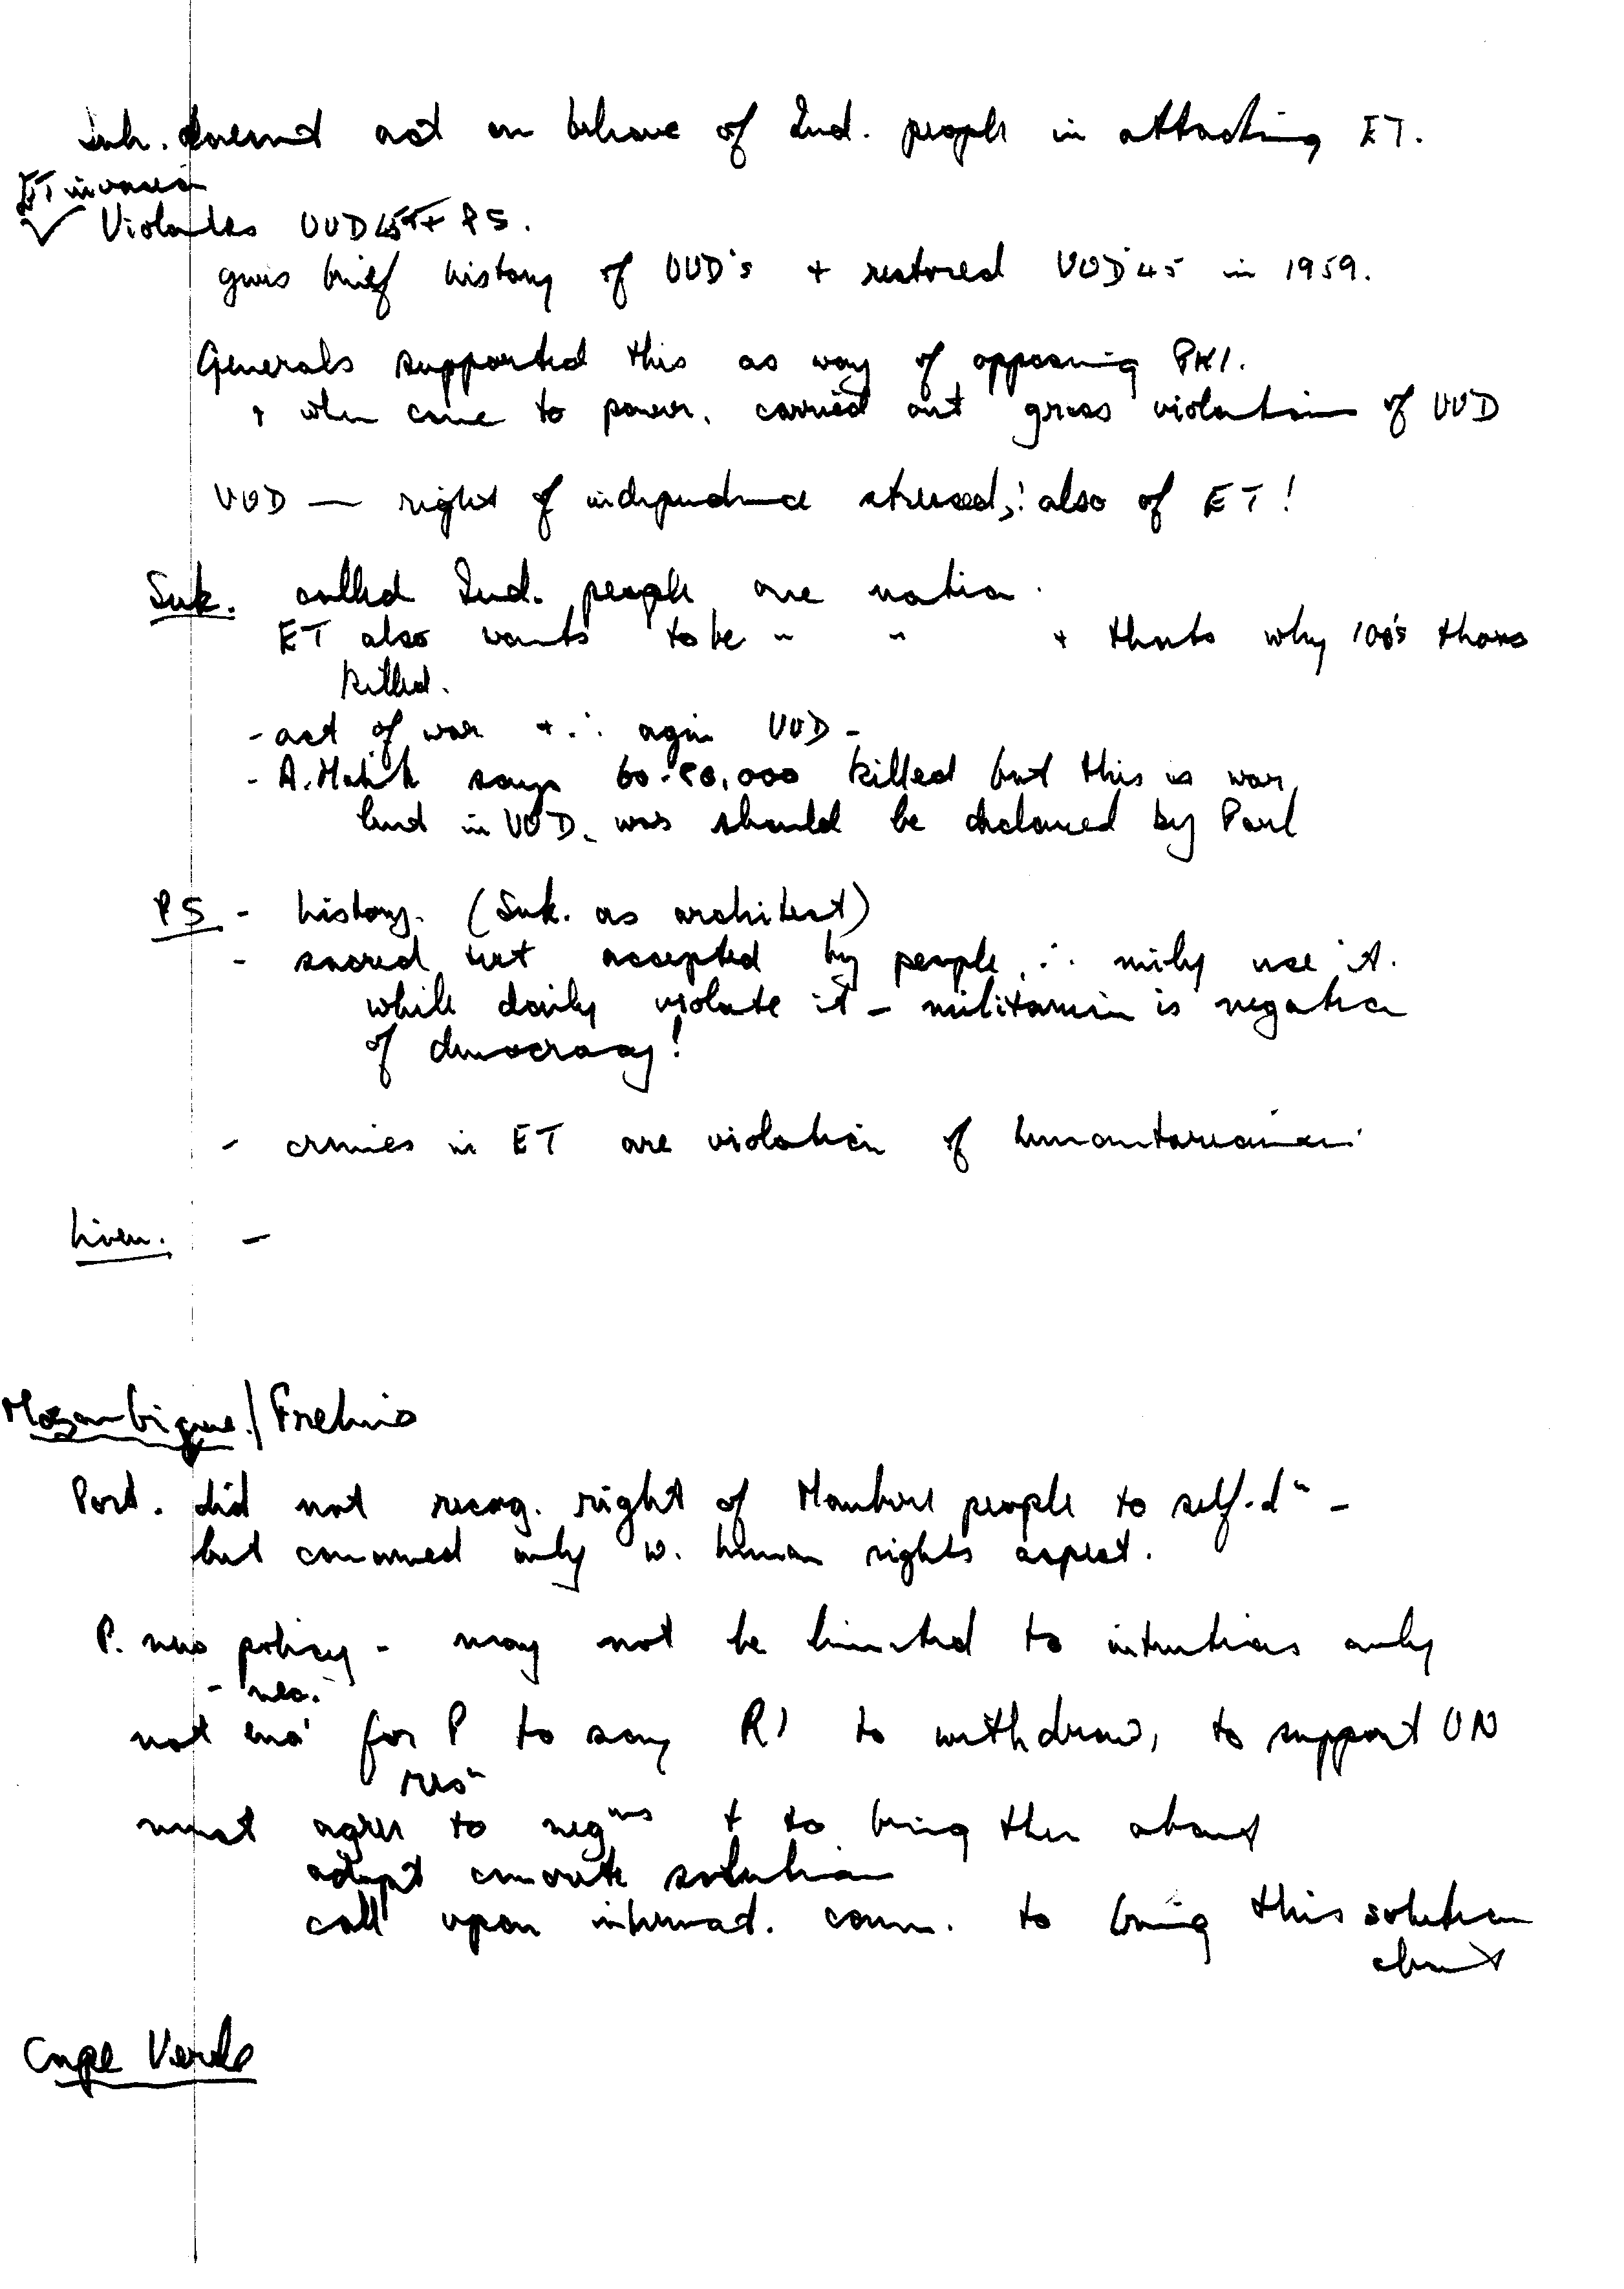 Suh. doesnt act on behave of Ind. people in attacking ET.
ET invasion
✓ Violates UUD45 + PS.
gives brief history of UUD's + restored UUD'45 in 1959.
Generals supported this as way of opposing PKI.
+ when came to power, carried out gross violations of UUD
UUD — right of independence stressed, ∴ also of ET!
Suk. called Ind. people one nation.
ET also wants to be " " + thats why 100's thous
killed.
- act of war + ∴ again UUD -
- A. Malik says 60-80,000 killed but this is war,
but in UUD, was should be declared by Parl
PS - history. (Suk. as architect)
- sacred but accepted by people, ∴ mily use it.
while daily violate it - militarism is negation
of democracy!
- crimes in ET are violation of humanitarianism.
Liem. -
Mozambique / Frelimo
Port. did not recog. right of Maubere people to self-dn -
but concerned only w. human rights aspect.
P. new policy - may not be limited to intentions only
- nec.
not eno' for P to say RI to withdraw, to support UN
resn
must agree to negns + to bring then about
adopt concrete solution
call upon internat. comm. to bring this solution
about
Cape Verde